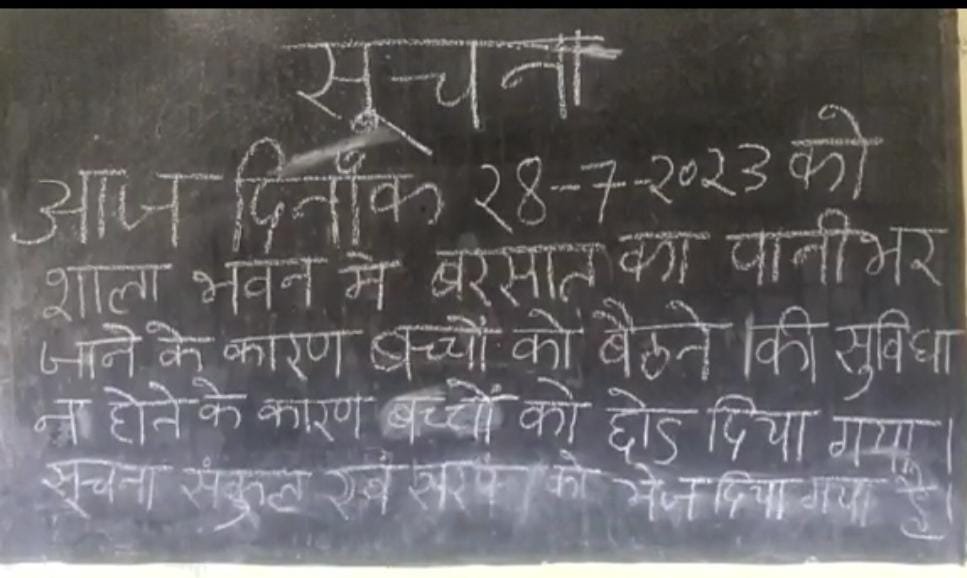 सूचना
आज दिनाँक 28-7-2023 को
शाला भवन मे बरसात का पानी भर
जाने के कारण बच्चों को बैठने की सुविधा
न होने के कारण बच्चों को छोड दिया गया।
सूचना संकुल एवं सरपंच को भेज दिया गया है।